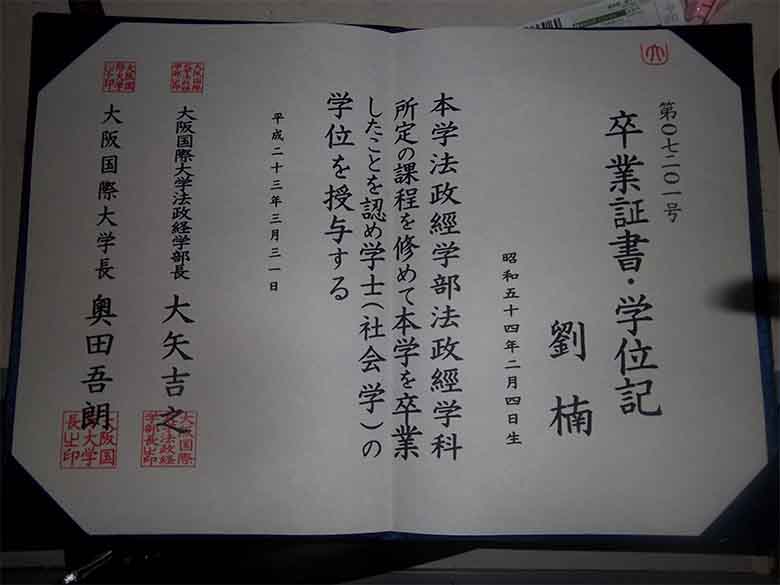 第〇七二〇一号
卒業証書・学位記
劉楠
昭和五十四年二月四日生
本学法政経学部法政経学科
所定の課程を修めて本学を卒業
したことを認め学士(社会学)の
学位を授与する
平成二十三年三月三一日
大阪国際大学法政経学部長 大矢吉之
大阪国際大学長 奥田吾朗
大阪国際大学法政経学部長之印
大阪国大学長之印